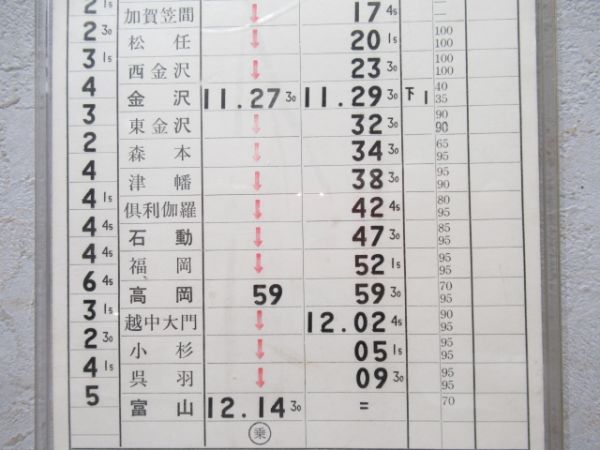 2 1s 加賀笠間 ↓ 17 4s
2 30 松任 ↓ 20 1s 100 100
3 1s 西金沢 ↓ 23 30 100 100
4 金沢 11.27 30 11.29 30 下1 40 35
3 東金沢 ↓ 32 30 90 90
2 森本 ↓ 34 30 65 95
4 津幡 ↓ 38 30 95 90
4 1s 倶利伽羅 ↓ 42 4s 80 95
4 4s 石動 ↓ 47 30 85 95
4 4s 福岡 ↓ 52 1s 95 95
6 4s 高岡 59 59 30 70 95
3 1s 越中大門 ↓ 12.02 4s 90 95
2 30 小杉 ↓ 05 1s 95 95
4 1s 呉羽 ↓ 09 30 95 95
5 富山 12.14 30 = 70
乗